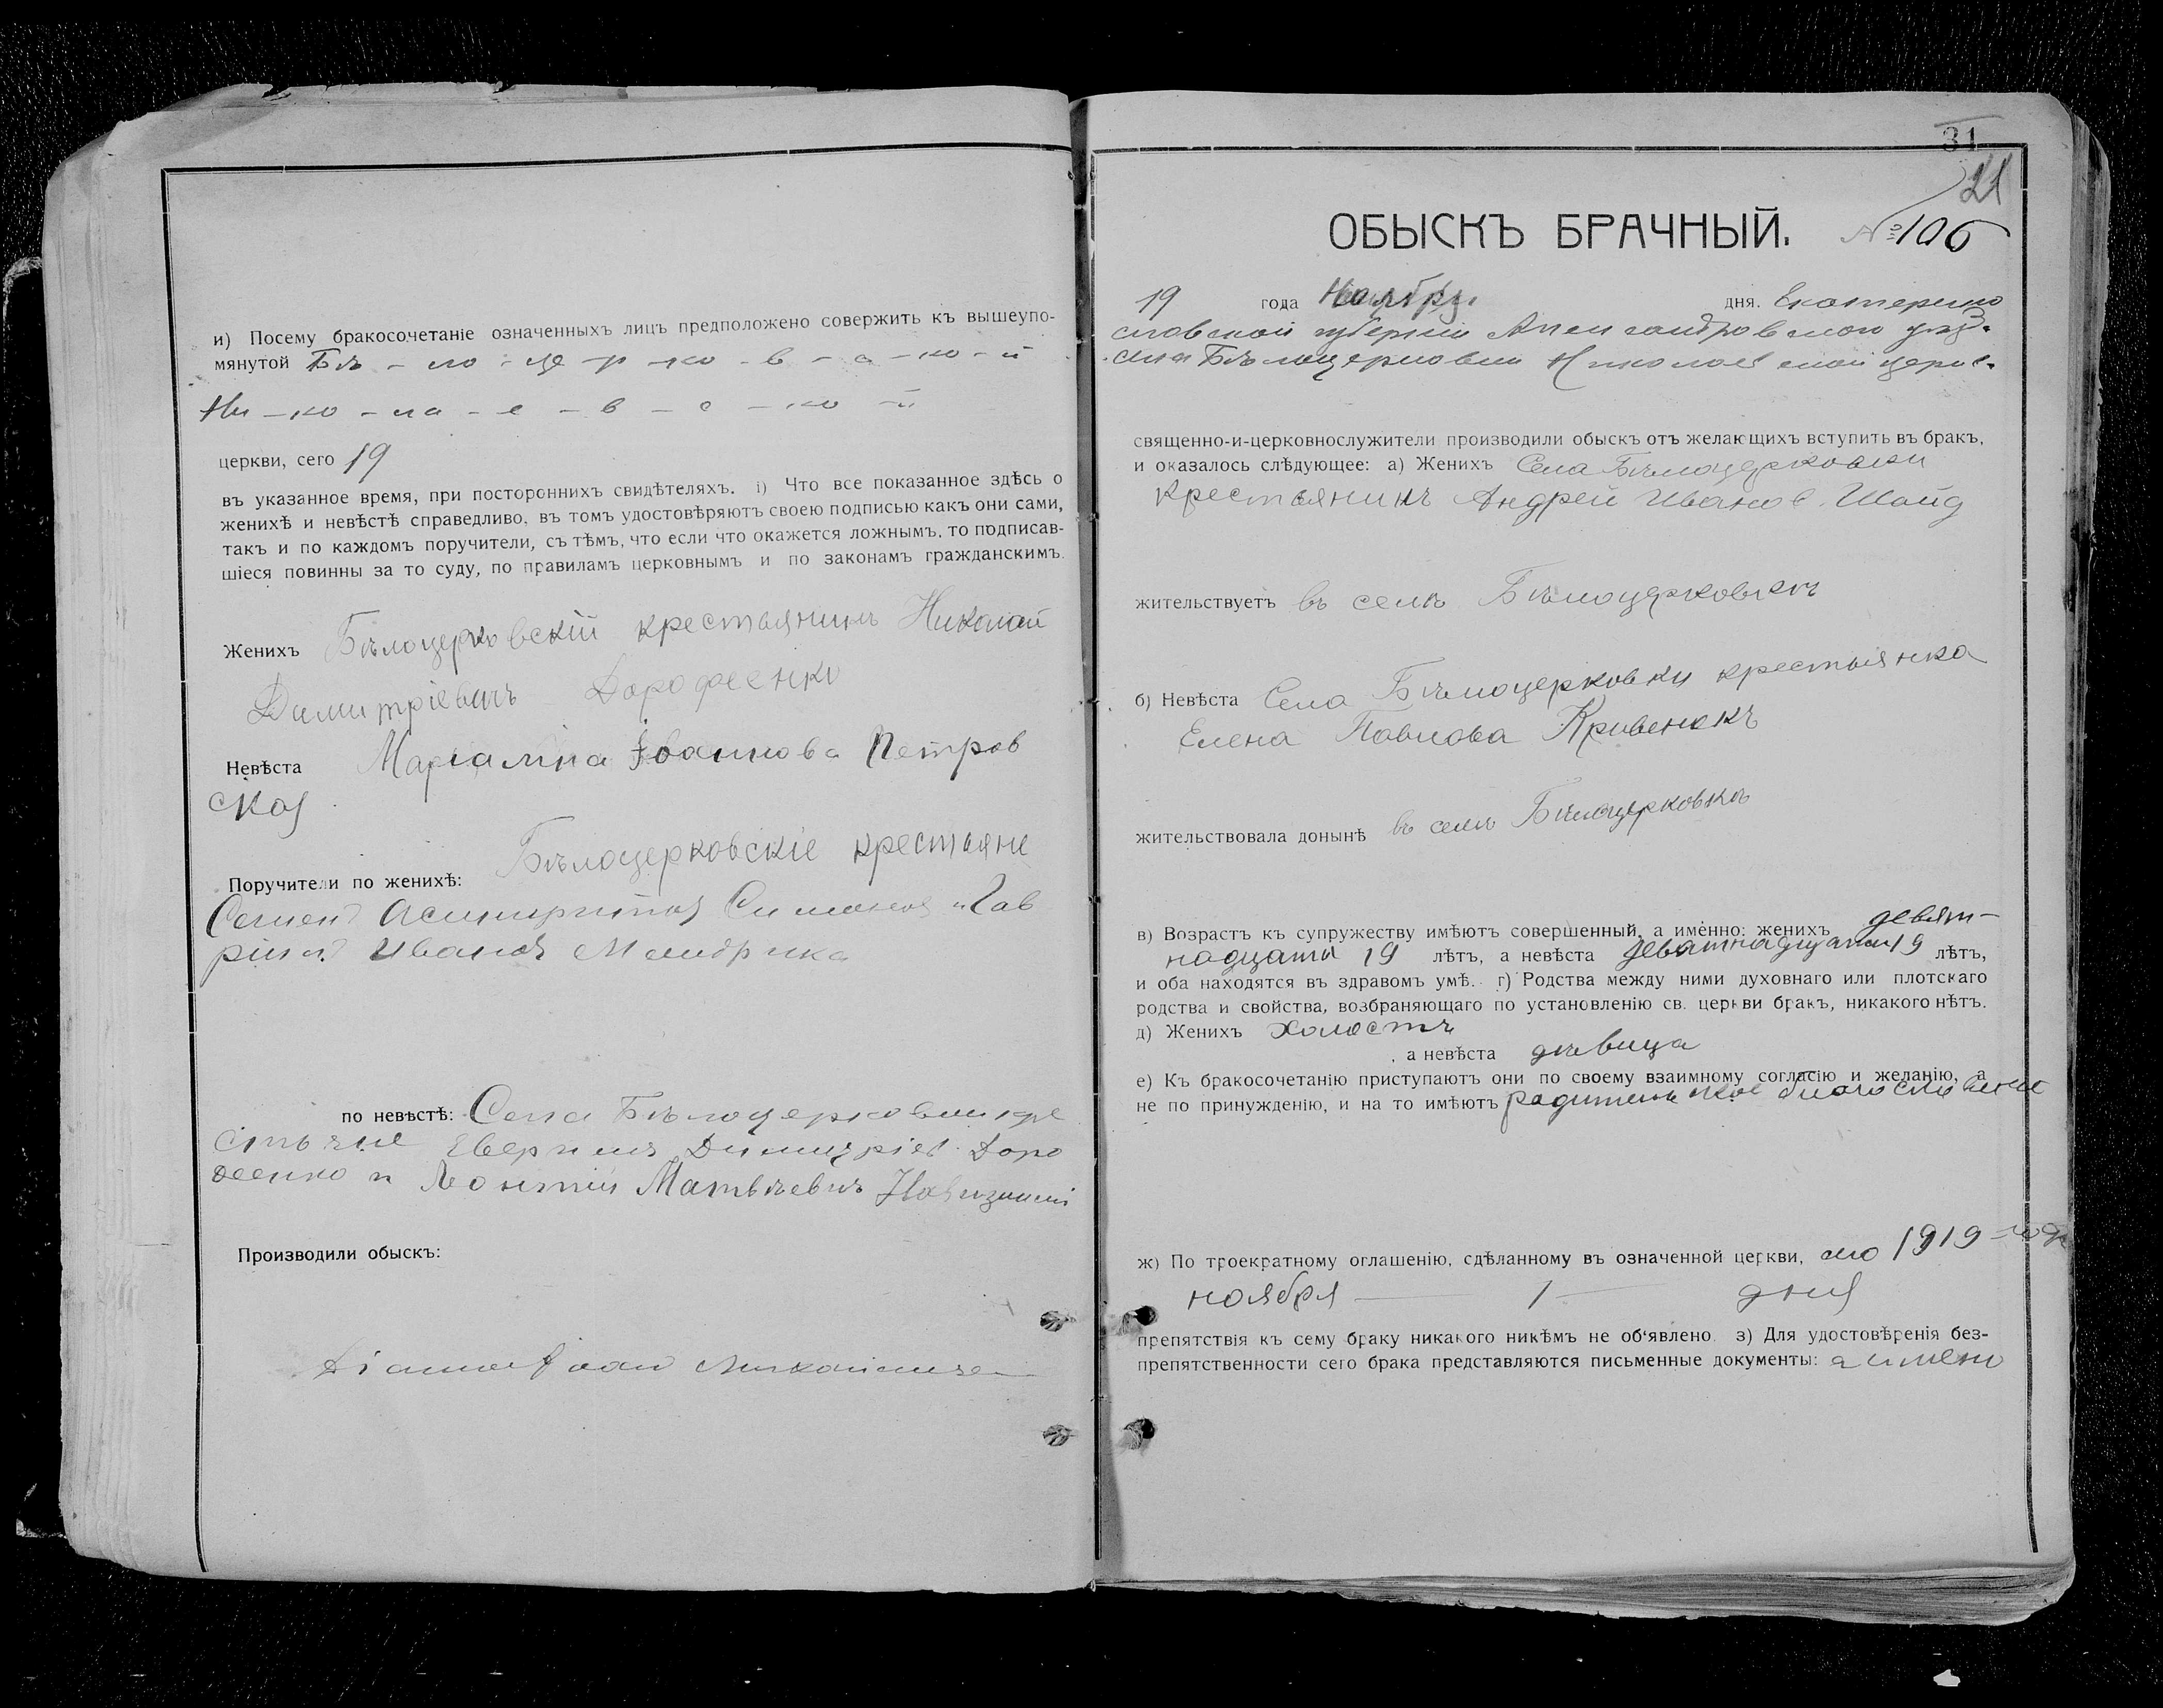 и) Посему бракосочетаніе означенныхъ лицъ предположено совержить къ вышеупо-
мянутой Бѣ - ло - це - р - ко - в - с - ко - й
Ни - ко - ла - е - в - с - ко - й
церкви, сего 19
въ указанное время, при постороннихъ свидѣтеляхъ. і) Что все показанное здѣсь о
женихѣ и невѣстѣ справедливо, въ томъ удостовѣряютъ своею подписью какъ они сами,
такъ и по каждомъ поручители, съ тѣмъ, что если что окажется ложнымъ, то подписав-
шіеся повинны за то суду, по правиламъ церковнымъ и по законамъ гражданскимъ.
Женихъ Бѣлоцерковскій крестьянинъ Николай
Димитріевичъ Дорофеенко
Невѣста Іванова Петров
ская
Бѣлоцерковскіе крестьяне
Поручители по женихѣ:
Семенъ и Гав
ріилъ Ивановъ Мандрика
по невѣстѣ: Села Бѣлоцерковки кре
стьяне Димитріев Доро
феенко и Леонтій Матвѣевичъ
Производили обыскъ:
31
21
ОБЫСКЪ БРАЧНЫЙ. № 106
19 года Ноября дня. Екатерино
славской губерніи Александровскаго уѣз.
села Бѣлоцерковки Николаевской церкв.
священно-и-церковнослужители производили обыскъ отъ желающихъ вступить въ бракъ,
и оказалось слѣдующее: а) Женихъ Села Бѣлоцерковки
крестьянинъ Андрей Иванов. Шайд
жительствуетъ въ селѣ Бѣлоцерковкѣ
б) Невѣста Села Бѣлоцерковки крестьянка
Елена Павлова Кривенокъ
жительствовала донынѣ въ селѣ Бѣлоцерковкѣ
в) Возрастъ къ супружеству имѣютъ совершенный, а именно: женихъ девят-
надцати 19 лѣтъ, а невѣста девятнадцати 19 лѣтъ,
и оба находятся въ здравомъ умѣ. г) Родства между ними духовнаго или плотскаго
родства и свойства, возбраняющаго по установленію св. церкви бракъ, никакого нѣтъ.
д) Женихъ холостъ
, а невѣста дѣвица
е) Къ бракосочетанію приступаютъ они по своему взаимному согласію и желанію, а
не по принужденію, и на то имѣютъ родительское благословеніе
ж) По троекратному оглашенію, сдѣланному въ означенной церкви, сего 1919 - года
ноября — 1 — дня
препятствія къ сему браку никакого никѣмъ не об'явлено. з) Для удостовѣренія без-
препятственности сего брака представляются письменные документы: а имено